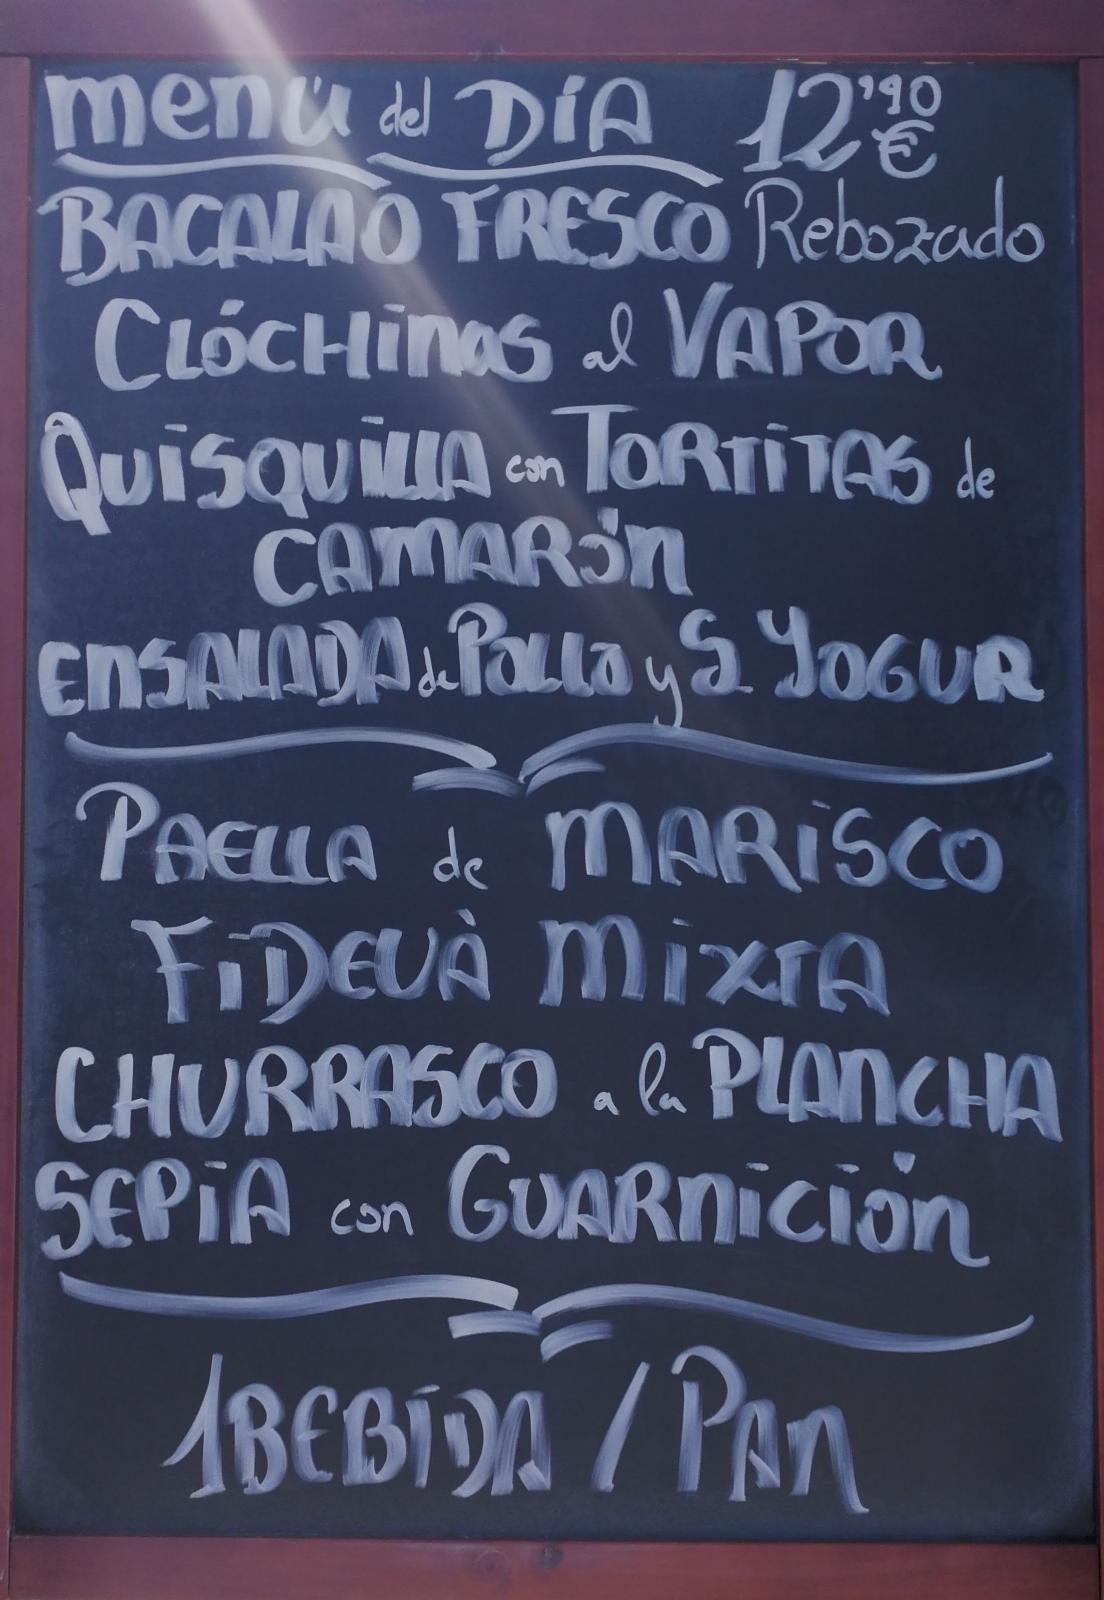 menú del DÍA 12'90 €
BACALAO FRESCO Rebozado
CLÓCHINAS al VAPOR
QUISQUILLA con TORTITAS de
CAMARÓN
ENSALADA de POLLO y S. YOGUR
PAELLA de MARISCO
FIDEUÀ MIXTA
CHURRASCO a la PLANCHA
SEPIA con GUARNICIÓN
1 BEBIDA / PAN